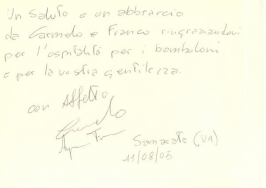 Un saluto e un abbraccio
da Carmelo e Franco ringraziandovi
per l'ospitalità per i bomboloni
e per la vostra gentilezza.
con Affetto
Carmelo
11/08/05